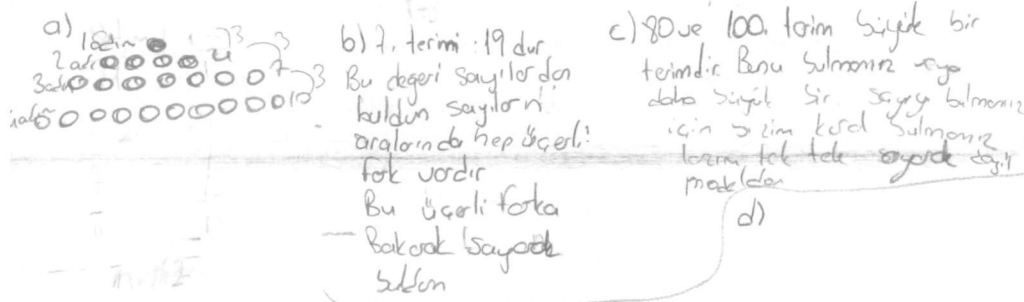 a)
1. adım
3
3
2. adı
4
3. adım
7
3
10
b) 7. terimi : 19 dur
Bu değeri sayılardan
buldum sayıların
aralarında hep üçerli
fark vardır
Bu üçerli farka
Bakarak sayarak
buldum
c) 80 ve 100. terim büyük bir
terimdir. Bunu bulmamız veya
daha büyük bir sayıyı bulmamız
için bizim kural bulmamız
lazım tek tek sayarak değil
modelden
d)